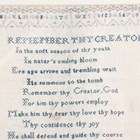 REMEMBER THY CREATOR
In the soft season of thy youth
In nature's smiling bloom
Ere age arrive and trembling wait
Its summons to the tomb
Remember thy Creator, God
For him thy powers employ
Make him thy fear thy love thy hope
Thy confidence thy joy
He shall defend and guide thy course